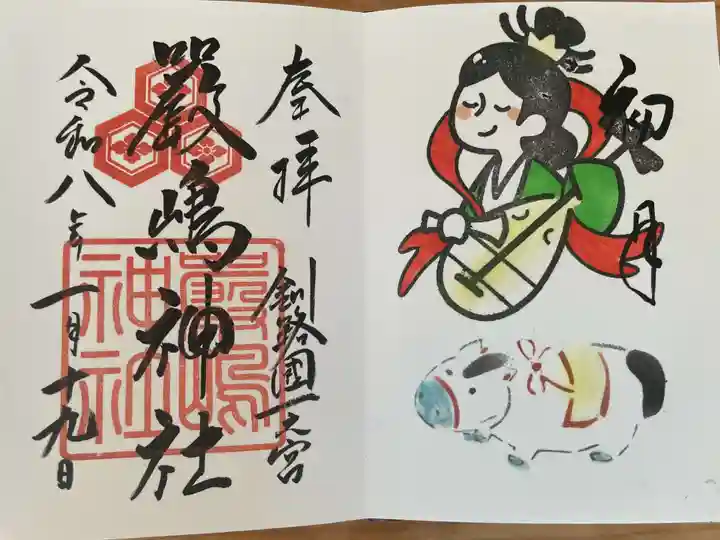 奉拝
釧路國一之宮
嚴嶋神社
嚴嶋
神社
令和八年
一月十九日